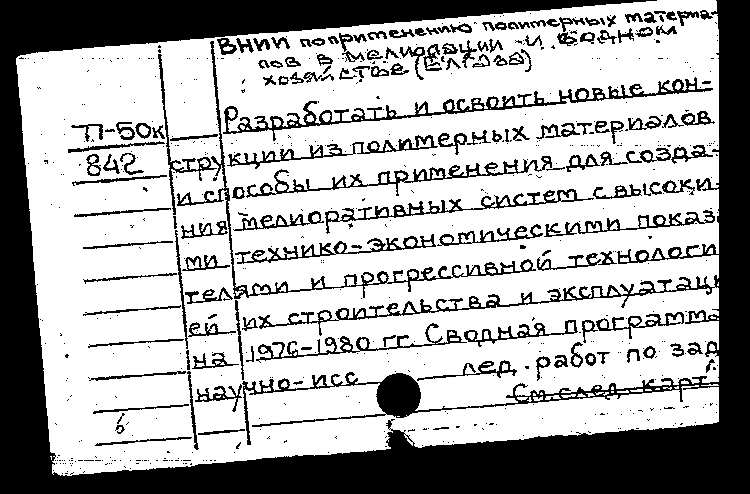 ВНИИ по применению полимерных материа-
лов в мелиорации и водном
хозяйстве (Елгава)
П-50к Разработать и освоить новые кон-
842 струкции из полимерных материалов
и способы их применения для созда-
ния мелиоративных систем с высоки
ми технико-экономическими показа
телями и прогрессивной технологи
ей их строительства и эксплуатац
на 1976-1980 гг. Сводная программа
научно-исслед. работ по зад
См. след. карт.
6